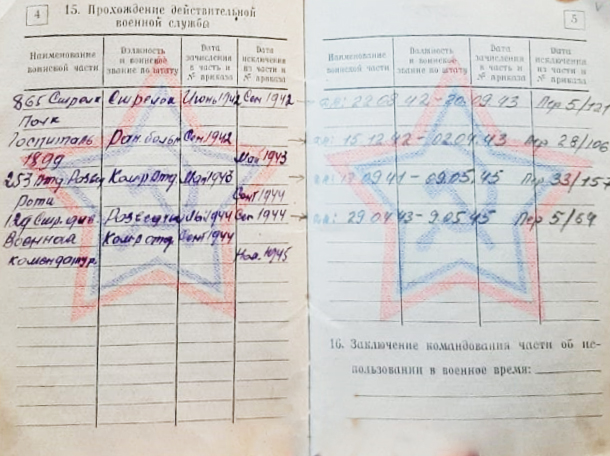 4
15. Прохождение действительной
военной службы
Наименование
воинской части
Должность
и воинское
звание по штату
Дата
зачисления
в часть и
№ приказа
Дата
исключения
из части и
№ приказа
865 Стрелк Стрелок Июнь 1942 Сен 1942
Полк
Госпиталь Ран. больн Сен 1942
1899 Май 1943
253 отд Развед Ком. отд. Май 1943
Рота Сент 1944
Стр. див. Разведчик 1944 Сен 1944
Военная Ком. отд. Сент 1944
комендатур. Ноя. 1945
5
Наименование
воинской части
Должность
и воинское
звание по штату
Дата
зачисления
в часть и
№ приказа
Дата
исключения
из части и
№ приказа
22.08.42 - 20.09.43 Пер 5/121
15.12.42 - 02.04.43 Пер 28/106
09.41 - 09.05.45 Пер. 33/157
29.04.43 - 9.05.45 Пер 5/64
16. Заключение командования части об ис-
пользовании в военное время: